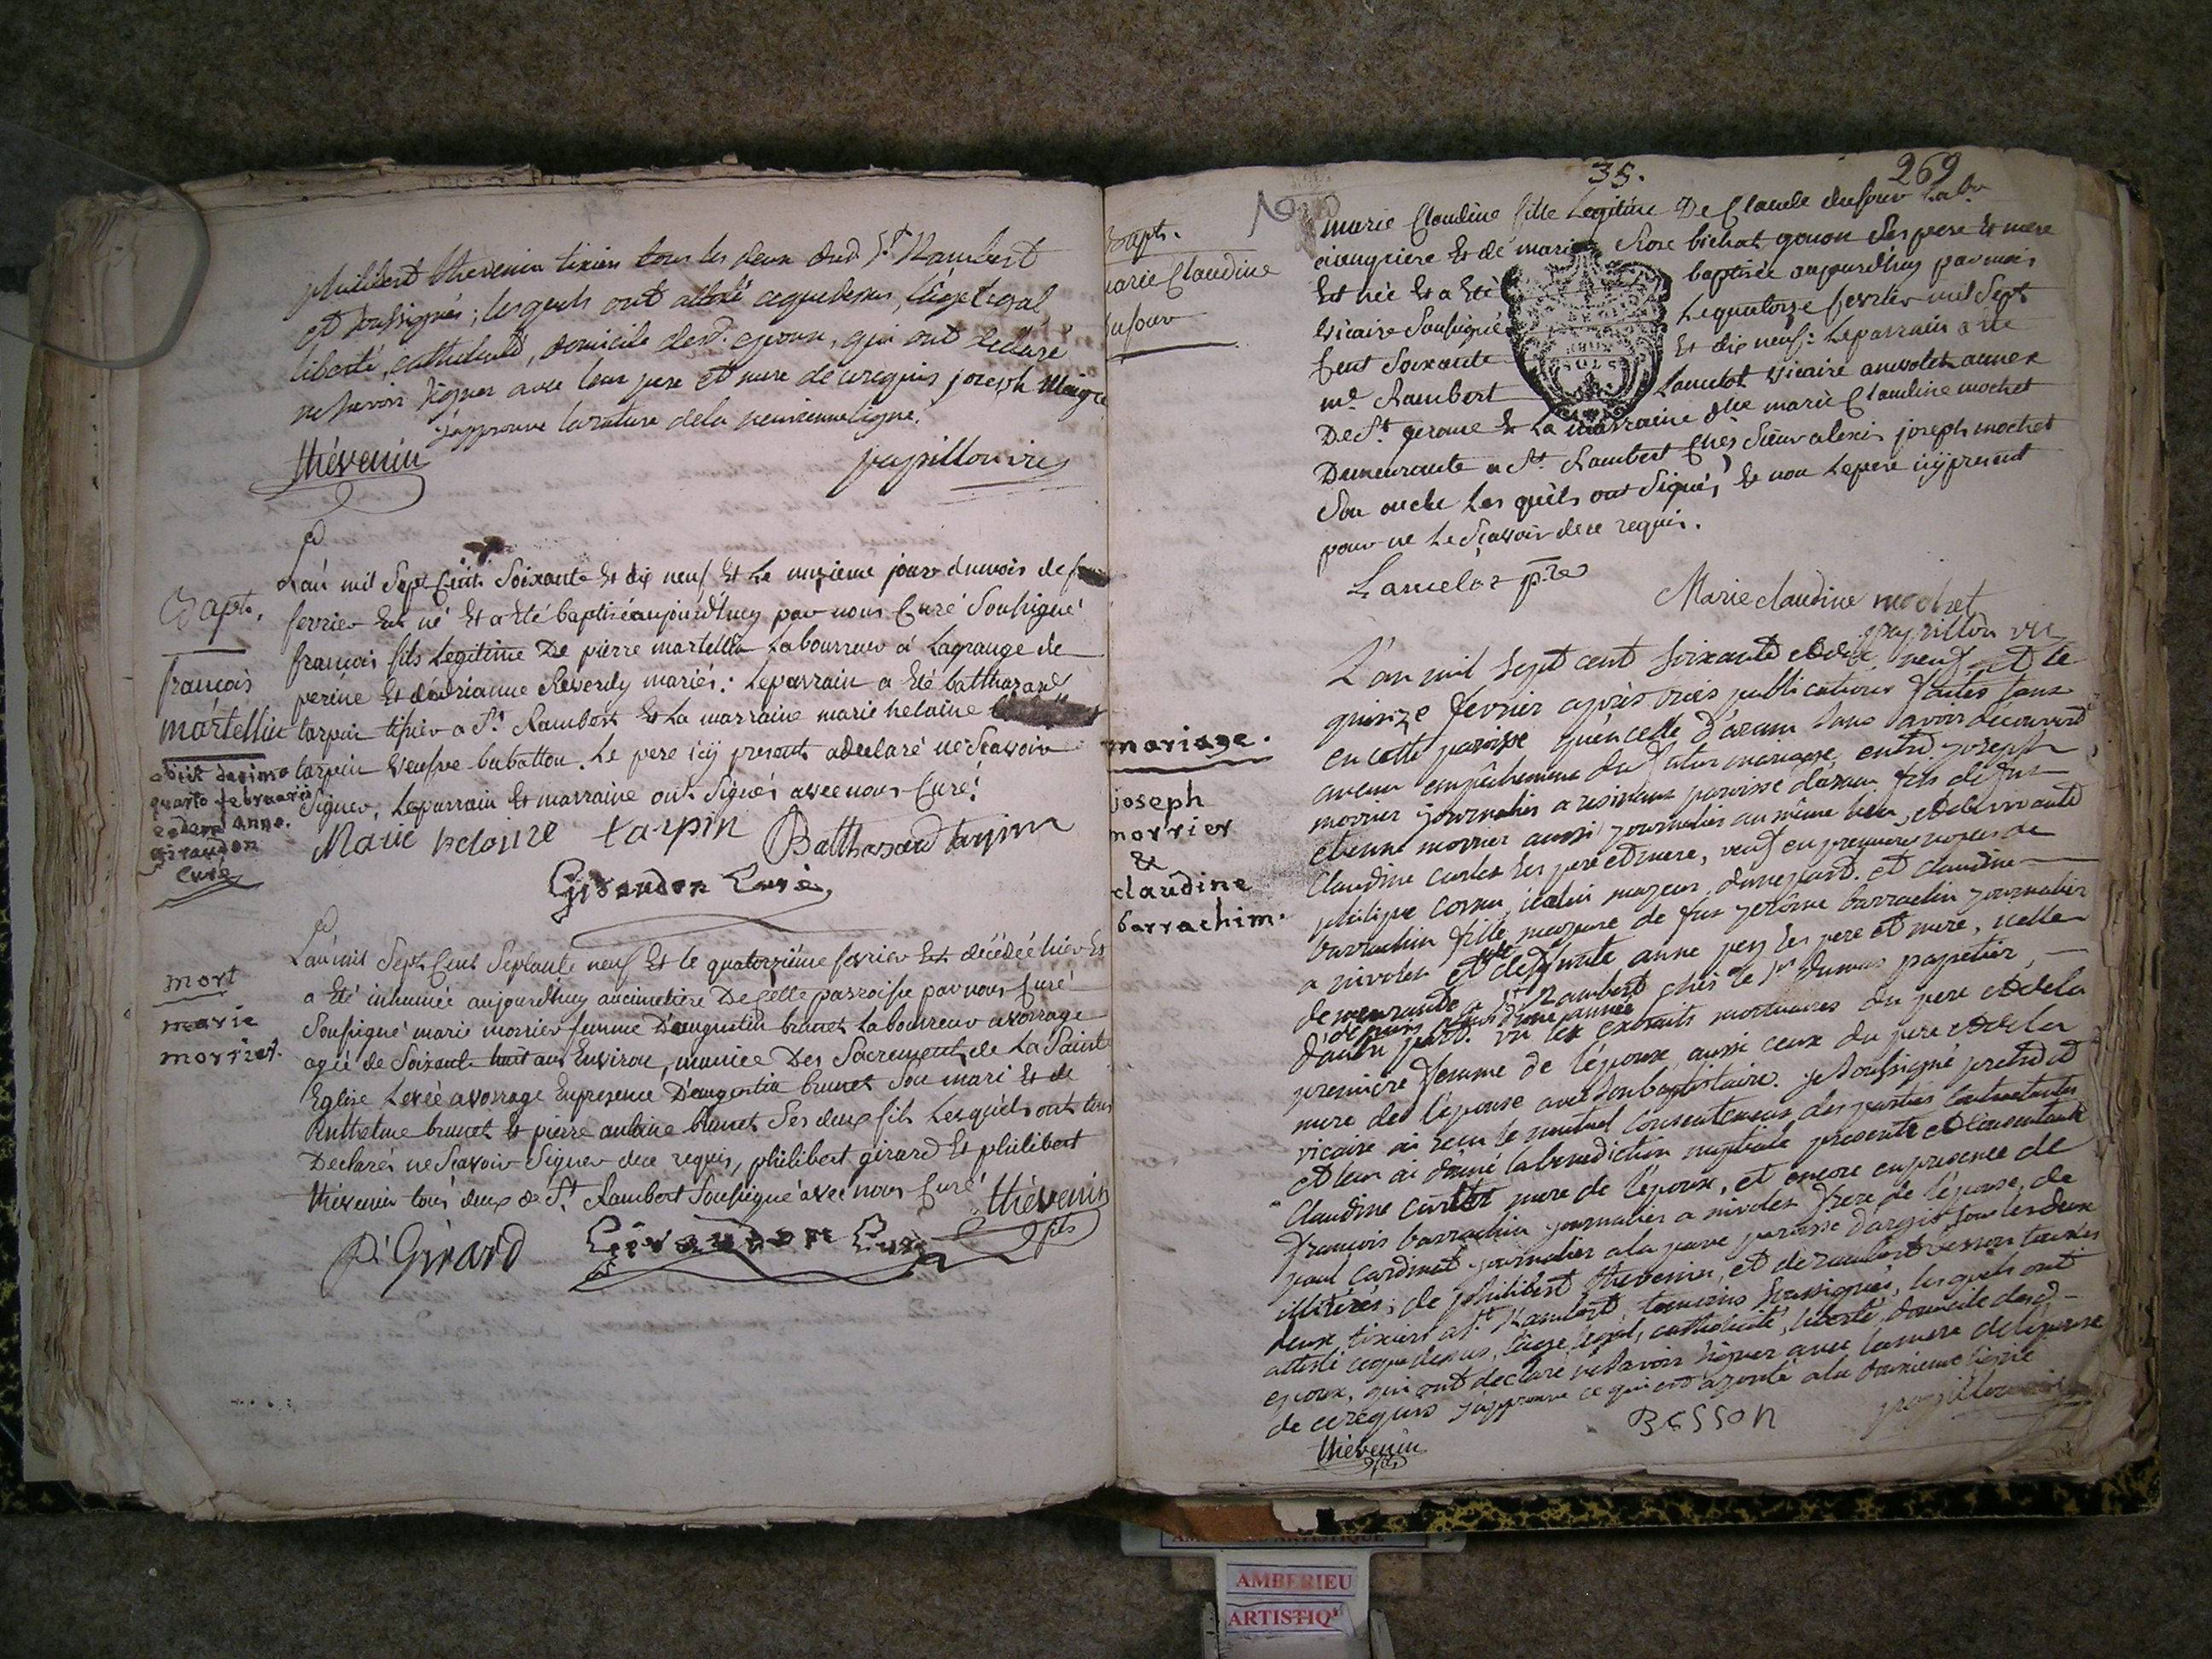 philibert thevenin tixiers tous les deux dud St Rambert
et soussignés; lesquels ont attesté cequedessus, l'âge legal
liberté, catholicité, domicile desd. epoux, qui ont declaré
ne savoir signer avec leur pere et mere de cerequis joseph
j'approuve la rature dela neuvieme ligne.
thévenin
papillon vic
Bapt.
françois
martellin
obiit decimo
quarto februarii
eodem anno.
Giraudon
Curé
Lan mil Sept Cent Soixante Et dix neuf Et Le unzieme jour du mois de
fevrier Est né Et a Eté baptisé aujourd'huy par nous Curé Soussigné
françois fils Legitime De pierre martellin Laboureur à Lagrange de
perine Et d'adrianne Reverdy mariés: Leparrain a Eté balthazard
tarpin tixier a St. Rambert Et La marraine marie helaine
tarpin veufve bubatton. Le pere icy present adeclaré ne Sçavoir
Signer, Leparrain Et marraine ont Signés avec nous Curé.
Marie helaine tarpin Balthasard tarpin
Giraudon Curé
mort
marie
morrier.
Lan mil Sept Cent Septante neuf Et le quatorzième fevrier Est décédée hier Et
a Eté inhumée aujourdhuy aucimetiere De Celle parroisse par nous Curé
Soussigné marie morrier femme D'augustin brunet Laboureur avorrage
agée de Soixante huit ans Environ, munice Des Sacrements de La Sainte
Eglise Levée avorrage Enpresence D'augustin brunet Son mari Et de
Anthelme brunet Et pierre antoine brunet Ses deux fils Lesquels ont tous
Declarés ne Scavoir Signer dece requis, philibert girard Et philibert
thévenin tous deux de St. Rambert Soussigné avec nous Curé
thévenin
fils
P Girard Giraudon Curé
35. 269
Bapt.
marie Claudine
dufour
marie Claudine fille Legitime De Claude dufour Labr
Et de marie Rose bichat gonon Ses pere Et mere
Est née Et a Eté baptisée aujourdhuy par moi
vicaire Soussigné Lequatorze fevrier mil Sept
Cent Soixante Et dix neuf: Leparrain a Eté
me Rambert Lancelot vicaire annexe
De St. gerome Et La marraine dlle marie Claudine mochet
Demeurante a St. Rambert Chés Sieur alexis joseph mochet
Son oncle Les quels ont Signé, Et non Lepere icy present
pour ne Le Sçavoir dece requis.
Lancelot ptre
Marie claudine mochet
papillon vic
mariage.
joseph
morrier
&
claudine
barrachim.
L'an mil Sept cent Soixante et dix neuf et le
quinze fevrier après trois publications faites tant
en cette paroisse qu'en celle d'aranc Sans avoir découvert
aucun empêchement du futur mariage, entre joseph
morrier journalier a resinand paroisse daranc fils de feu
etienne morrier aussi journalier au même lieu, et de vivante
Claudine curlet Ses pere et mere, veuf en premieres noces de
philippe cornu, icelui majeur, d'une part. et claudine
barrachin fille majeure de feu jerôme barrachin journalier
a nivolet et de defunte anne pey Ses pere et mere, icelle
demeurante a St Rambert chés le Sr dumas papetier,
depuis plus d'une année
d'autre part. vu les extraits mortuaires du pere et de la
premiere femme de l'epoux, aussi ceux du pere et de la
mere de l'epouse avec Sonbaptistaire. je Soussigné pretre et
vicaire ai recu le mutuel consentement des parties contractantes
et leur ai donné la benediction nuptiale presente et consentante
Claudine curlet mere de l'epoux, et encore enpresence de
françois barrachin journalier a nivolet frere de l'epouse, de
paul cardinet journalier a la pave paroisse d'argis tous les deux
illitérés; de philibert thevenin, et de rambert besson tous les
deux tixiers a St Rambert temoins Soussignés, lesquels ont
attesté cequedessus, l'âge legal, catholicité, liberté, domicile desd.
epoux, qui ont declaré ne Savoir Signer avec la mere de l'epoux
de cerequis j'approuve ce qui est ajouté a la douzieme ligne
BESSON
papillon vic
thévenin
fils
AMBERIEU
ARTISTIQ'